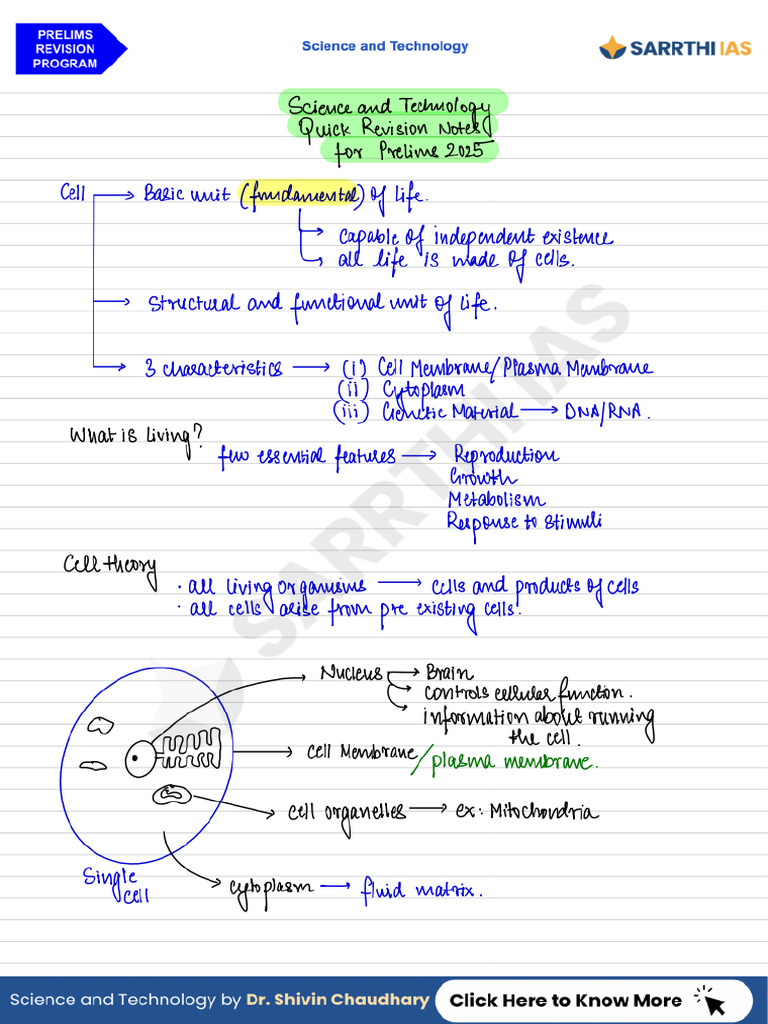 PRELIMS
REVISION
PROGRAM
Science and Technology
SARRTHI IAS
Science and Technology
Quick Revision Notes
for Prelims 2025
Cell → Basic unit (fundamental) of life.
→ capable of independent existence
→ all life is made of cells.
→ structural and functional unit of life.
→ 3 characteristics → (i) Cell Membrane/Plasma Membrane
(ii) Cytoplasm
(iii) Genetic Material → DNA/RNA.
What is living?
few essential features → Reproduction
Growth
Metabolism
Response to stimuli
Cell theory
· all living organisms → cells and products of cells
· all cells arise from pre existing cells.
SARRTHI IAS
Nucleus → Brain
→ controls cellular function.
→ information about running
the cell.
→ cell Membrane/plasma membrane.
→ cell organelles → ex: Mitochondria
Single
cell
→ cytoplasm → fluid matrix.
Science and Technology by Dr. Shivin Chaudhary
Click Here to Know More